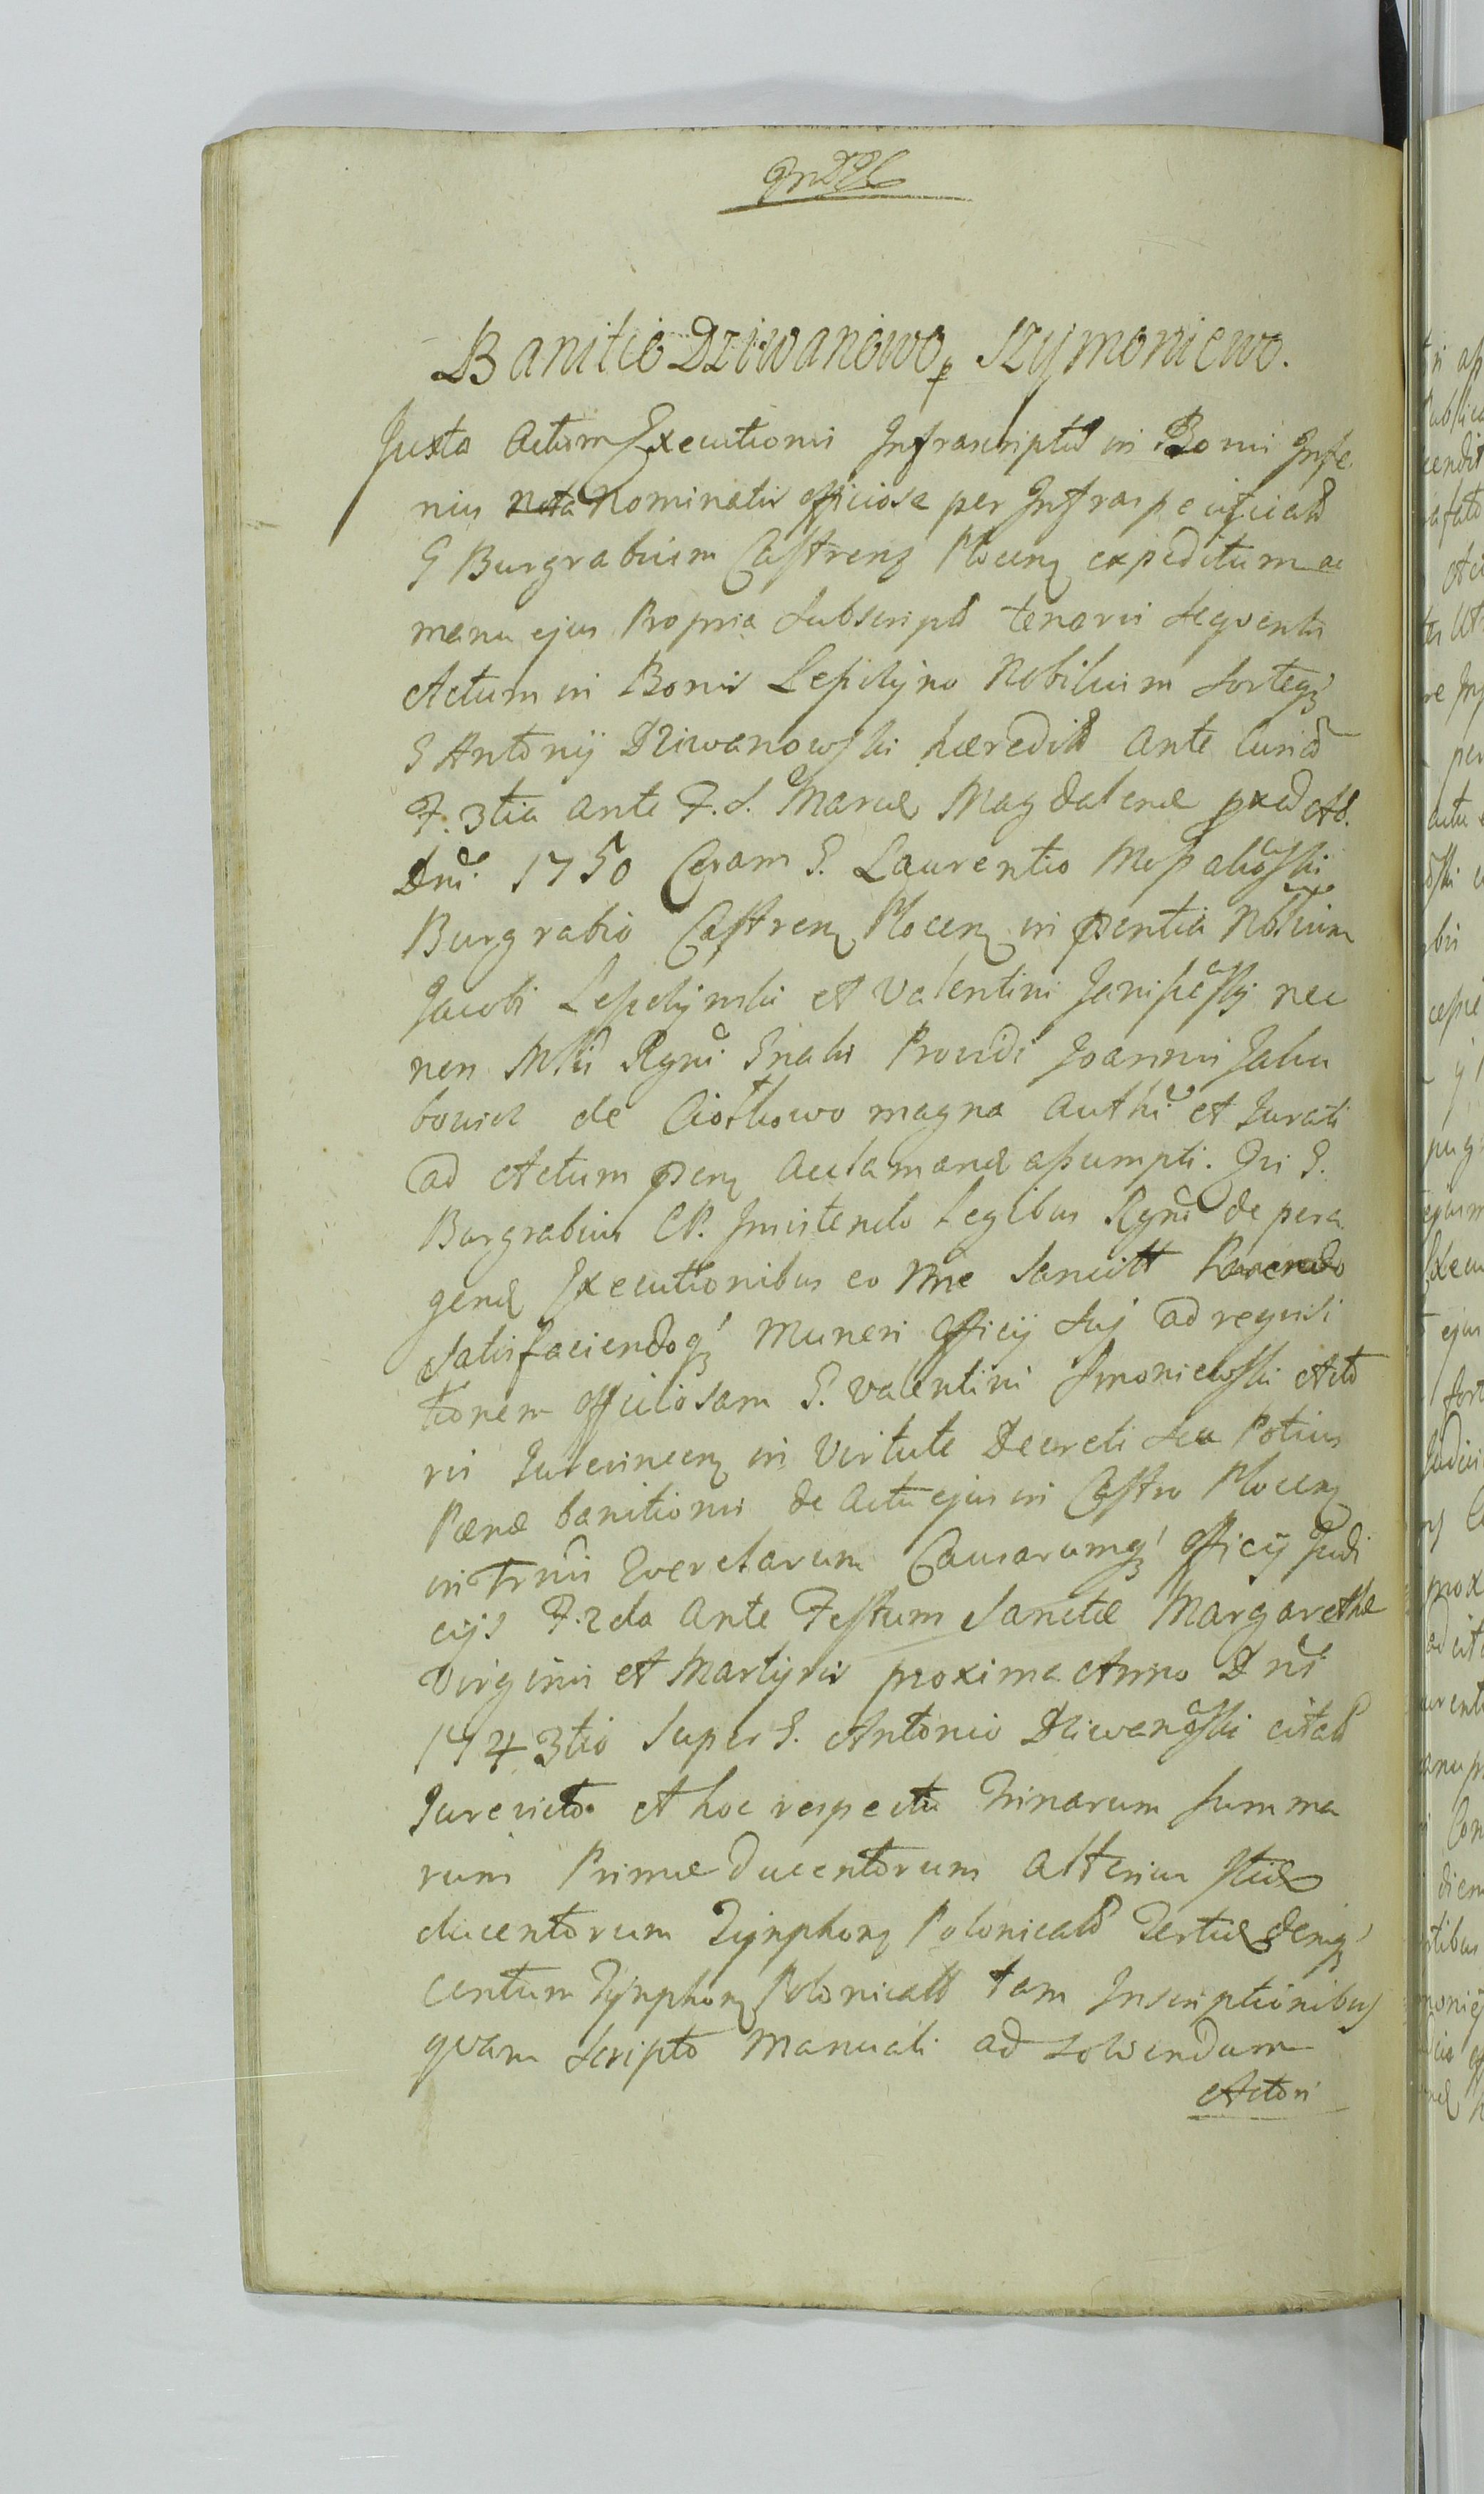 Banitio Dziwanowo p Szymoniewo.
Juxta Actum Executionis Infrascriptū in Bonis Infe
rius nota Nominatis officiose per Infraspecificatū
G Burgrabium Castrenς Plocenς expeditum ac
manu ejus Propria Subscriptū tenoris Sequentis
Actum in Bonis Lepihyno Nobilium Sorteqꝫ
G Antonij Dziwanowski hæreditā Ante Curiā
F. 3tia Ante F. S. Mariæ Magdalenæ A.
Dni 1750 Coram G. Laurentio
Burgrabio Castrenς Plocenς in pntia Nobilium
Jacobi et Valentini nec
non Mlii Rgni Gnalis Providi Joannis Jaku
bowicz de Ciołkowo magna Authci et Jurati
ad Actum pnς aclamandæ assumpti. Qui G.
Burgrabius CP. Innitendo Legibus Rgni de pera
gendς Executionibus eo nne Sancitt Parendo
Satisfaciendoqꝫ Muneri officij Sui ad requisi
tionem officiosam G. Valentini Smoniewski Acto
ris Jurevincenς in Virtute Decreti Seu Potius
Pænæ banitionis de Actu ejus in Castro Plocenς
in Trnis Querelarum Causarumqꝫ officij Judi
cijs F. 2da Ante Festum Sanctæ Margarethæ
Virginis et Martyris proxima Anno Dni
1743tio Super G. Antonio Dziwanowski citatū
Jurevicto et hoc respectu trinarum Summa
rum Primæ Ducentorum alterius
ducentorum Tynphonς Polonicalū Tertiæ deniqꝫ
centum Tynphonς Polonicall tam Inscriptionibus
quam Scripto Manuali ad solvendum
Actori